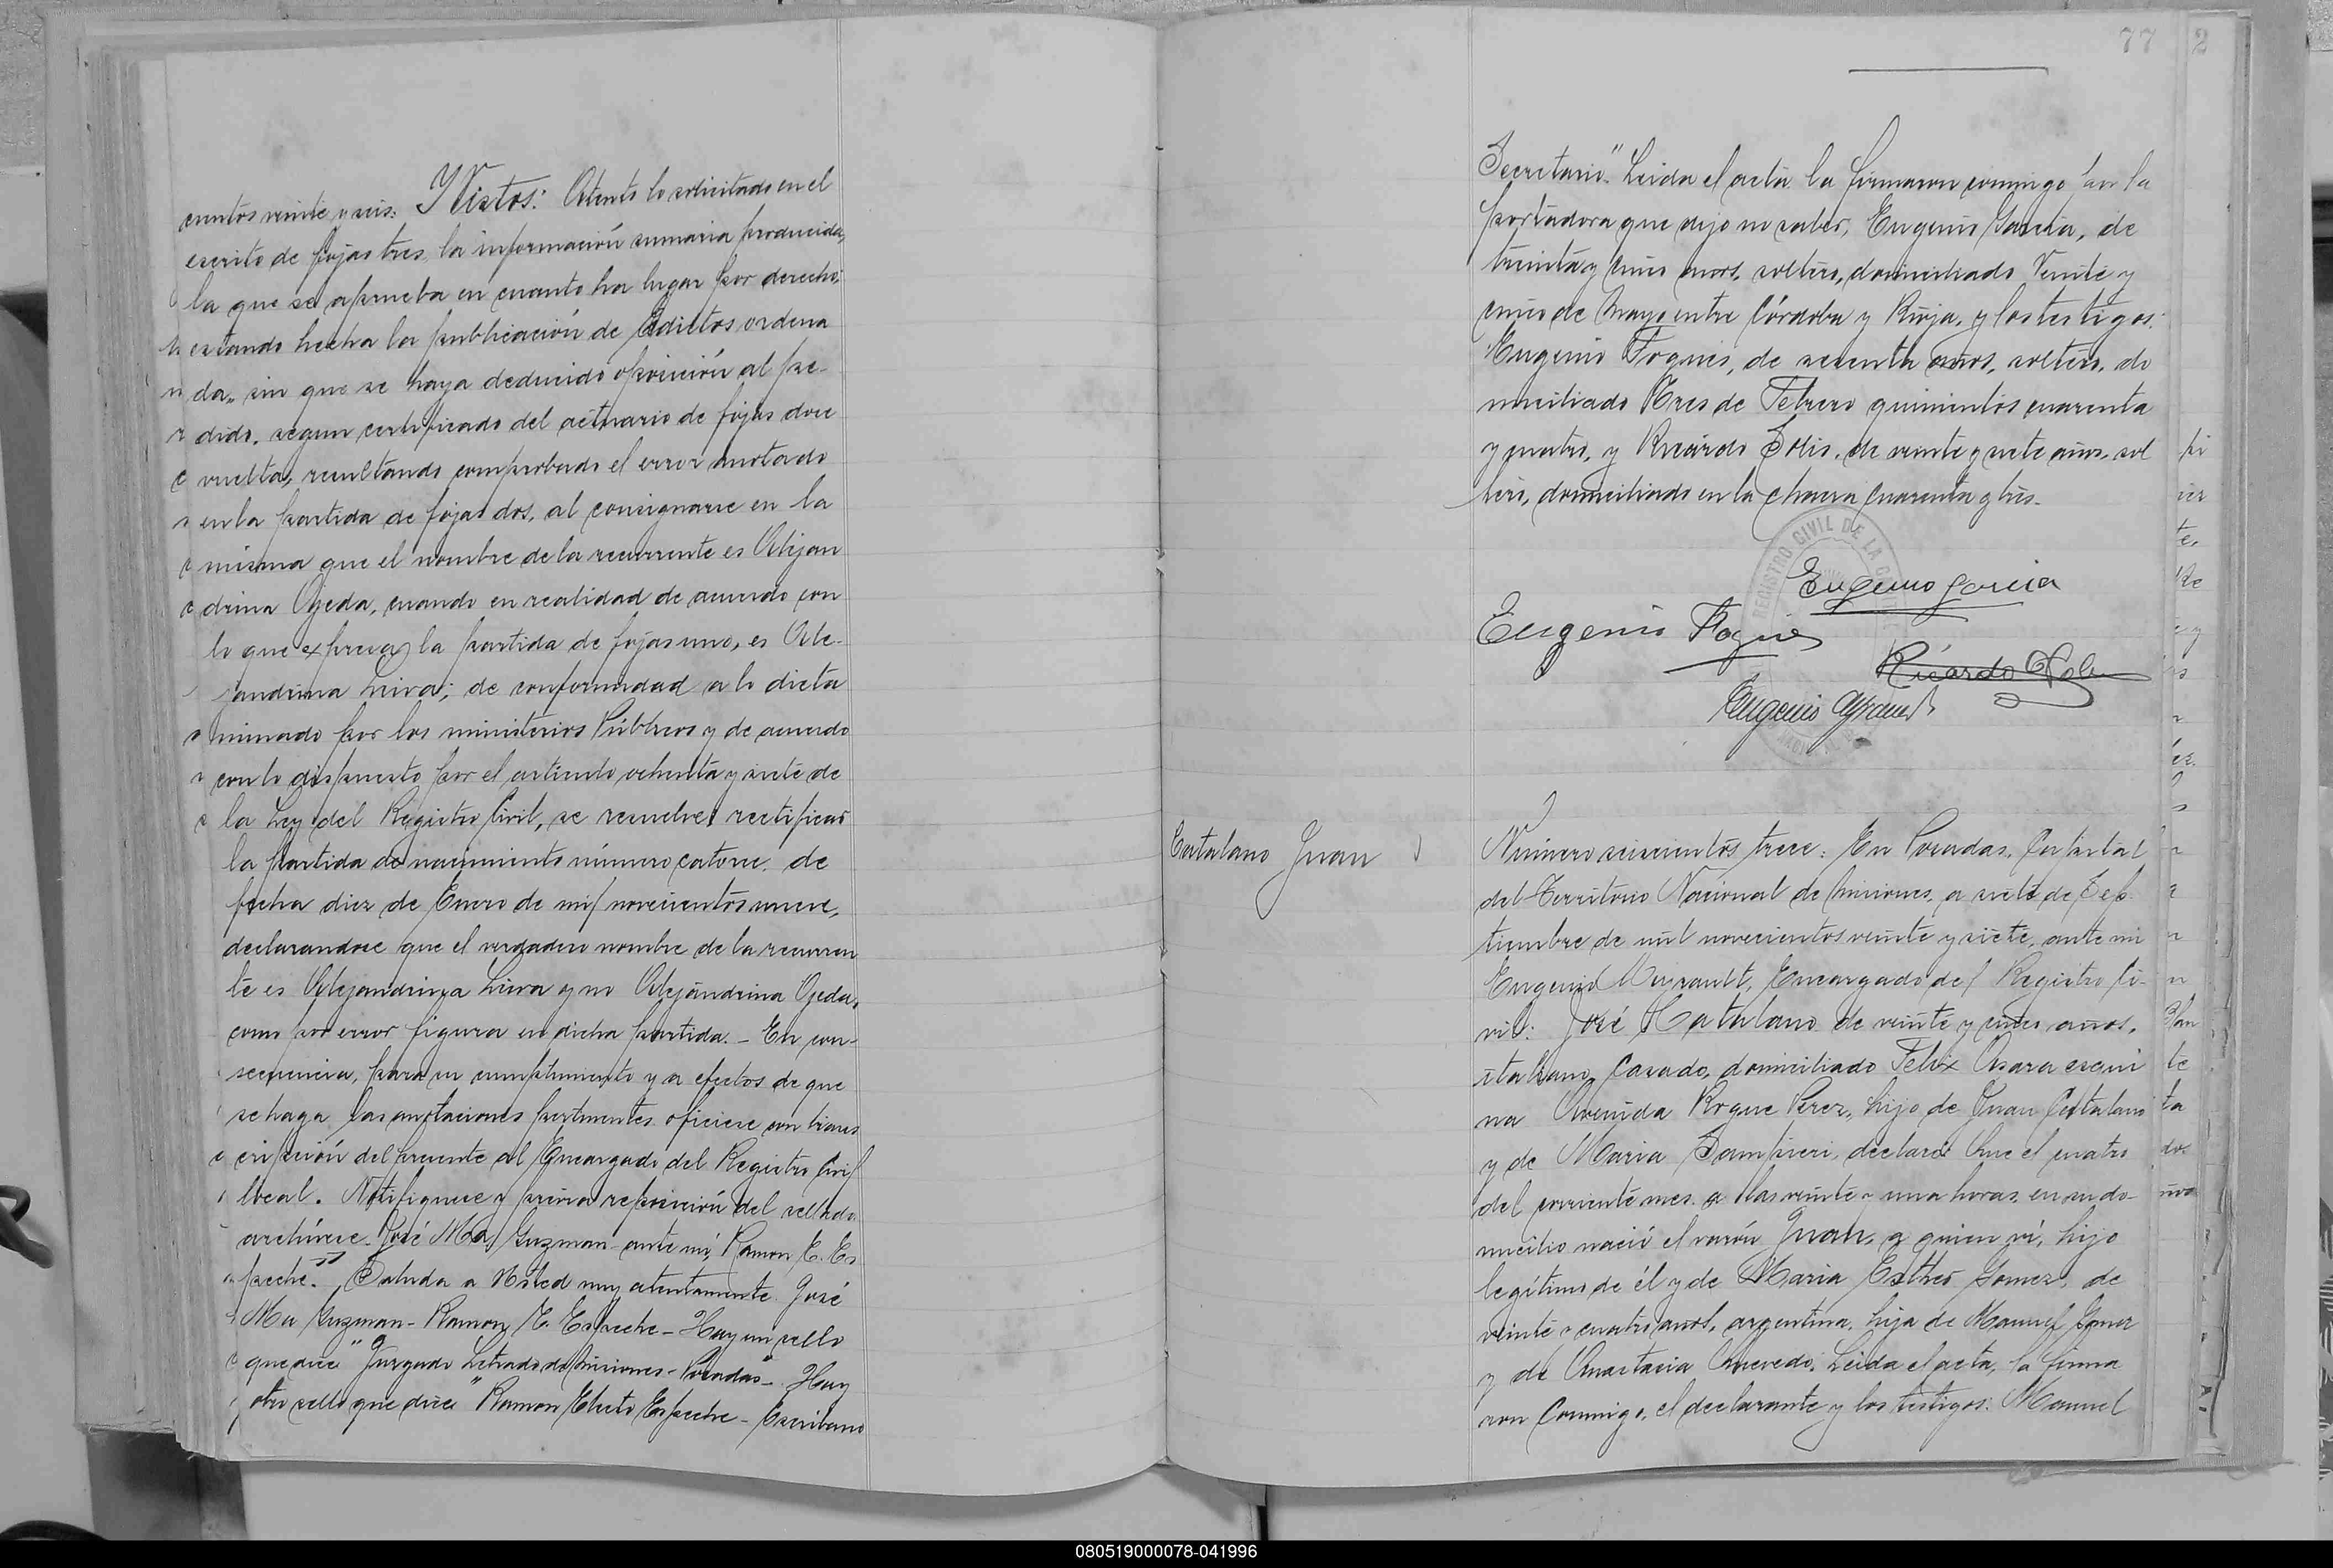 cientos veinte y seis: Y Vistos: Atento lo solicitado en el
escrito de fojas tres, la información sumaria producida,
la que se aprueba en cuanto ha lugar por derecho;
estando hecha la publicación de Edictos ordena
da, sin que se haya deducido oposición al pe-
dido, segun certificado del actuario de fojas doce
vuelta, resultando comprobado el error anotado
en la partida de fojas dos, al consignarse en la
misma que el nombre de la recurrente es Alejan
drina Ojeda, cuando en realidad de acuerdo con
lo que expresa la partida de fojas uno, es Ale-
jandrina Leiva; de conformidad a lo dicta
minado por los ministerios Públicos y de acuerdo
con lo dispuesto por el artículo ochenta y siete de
la Ley del Registro Civil, se resuelve: rectificar
la partida de nacimiento número catorce, de
fecha diez de Enero de mil novecientos nueve,
declarandose que el verdadero nombre de la recurren
te es Alejandrina Leiva y no Alejandrina Ojeda,
como por error figura en dicha partida. - En con-
secuencia, para su cumplimiento y a efectos de que
se haga las anotaciones pertinentes oficiese con trans
cripción del presente al Encargado del Registro Civil
local. Notifiquese y previa reposición del sellado
archívese. José Ma Guzman - ante mí, Ramon E. Es
peche." Saluda a Usted muy atentamente. José
Ma Guzman - Ramon E. Espeche - Hay un sello
que dice "Juzgado Letrado de Misiones - Posadas" - Hay
otro sello que dice "Ramon Electo Espeche - Escribano
77
2
Secretario". Leida el acta la firmaron conmigo por la
portadora que dijo no saber, Eugenio García, de
treinta y cinco años, soltero, domiciliado Veinte y
cinco de Mayo entre Córdoba y Rioja, y los testigos:
Eugenio Foquies, de sesenta años, soltero, do
miciliado Tres de Febrero quinientos cuarenta
y cuatro, y Ricardo Solis, de veinte y siete años, sol
tero, domiciliado en la chacra cuarenta y tres.
REGISTRO CIVIL DE LA
Eugenio Garcia
Eugenio Foquies
Ricardo
Eugenio
Catalano Juan
Número seiscientos trece: En Posadas, Capital
del Territorio Nacional de Misiones, a siete de Sep-
tiembre de mil novecientos veinte y siete, ante mi
Eugenio Encargado del Registro Ci-
vil: José Catalano de veinte y cinco años,
italiano, casado, domiciliado Felix Azara esqui
na Avenida Roque Perez, hijo de Juan Catalano
y de Maria Sampieri, declaró: Que el cuatro
del corriente mes a las veinte y una horas, en su do-
micilio nació el varón Juan, a quien ví, hijo
legítimo de él y de Maria Esther Gomez, de
veinte y cuatro años, argentina, hija de Manuel Gomez
y de Anastacia Quevedo. Leida el acta, la firma
ron conmigo, el declarante y los testigos: Manuel
080519000078-041996